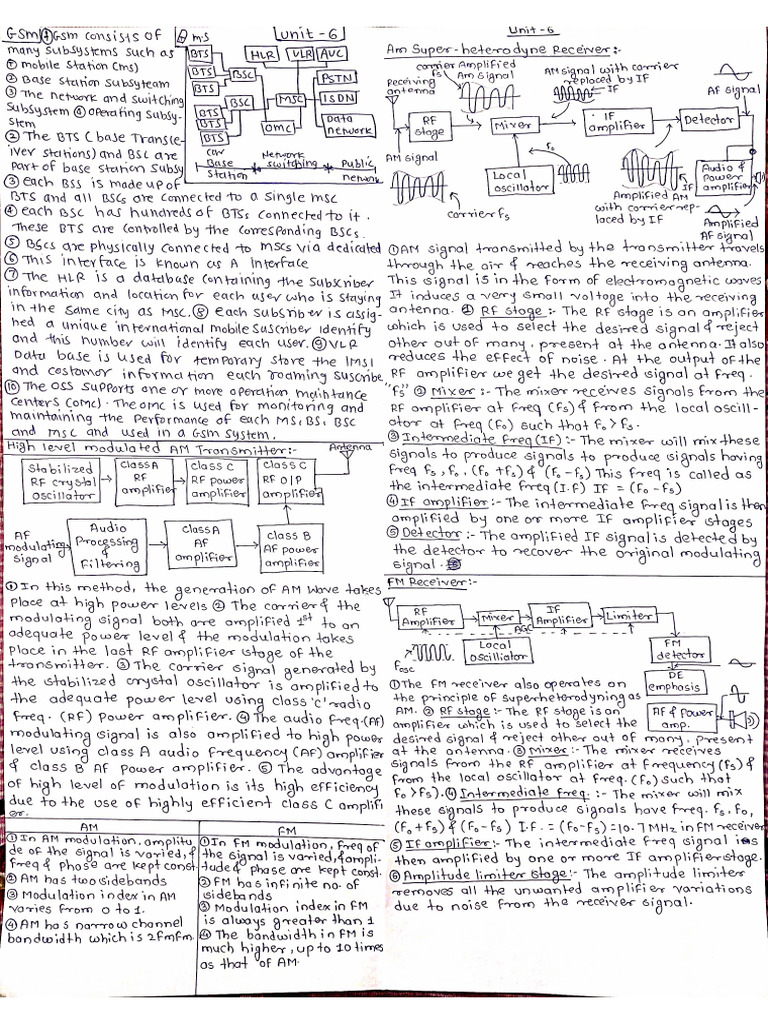 GSM ① GSM consists of
many subsystems such as
① mobile Station (ms)
② Base Station Subsyteam
③ The network and switching
Subsystem ④ operating Subsy-
stem
② The BTS ( base Transce-
iver stations) and BSC are
part of base station Subsy
③ each BSS is made up of
BTS and all BSCs are connected to a single msc
④ each BSC has hundreds of BTSs connected to it.
These BTS are controlled by the corresponding BSCs.
⑤ BSCs are physically connected to MSCs via dedicated
⑥ This interface is known as A Interface
⑦ The HLR is a database containing the subscriber
information and location for each user who is staying
in the same city as MSC. ⑧ each Subsriber is assig-
hed a unique international mobile Suscriber Identify
and this number will identify each user. ⑨ VLR
Data base is used for temporary store the IMSI
and costomar information each roaming suscribe
⑩ The OSS supports one or more operation maintance
Centers (OMC). The omc is used for monitoring and
maintaining the Performance of each MS, BS, BSC
and msc and used in a Gsm System.
m·s
Unit - 6
BTS
BTS
BTS
BTS
BTS
BTS
BTS
BSC
BSC
HLR
VLR
AUC
MSC
OMC
PSTN
ISDN
Data
network
Base
Station
Network
switching
Public
network
High level modulated AM Transmitter:-
Antenna
Stabilized
RF crystal
oscillator
Class A
RF
amplifier
Class C
RF power
amplifier
Class C
RF O/P
amplifier
AF
modulating
signal
Audio
Processing
&
Filtering
Class A
AF
amplifier
class B
AF power
amplifier
① In this method, the generation of AM wave takes
Place at high power levels ② The carrier & the
modulating signal both are amplified 1st to an
adequate power level & the modulation takes
Place in the last RF amplifier stage of the
transmitter. ③ The carrier signal generated by
the stabilized crystal oscillator is amplified to
the adequate power level using class 'C' radio
freq. (RF) Power amplifier. ④ The audio freq (AF)
modulating signal is also amplified to high power
level using class A audio frequency (AF) amplifier
& class B AF power amplifier. ⑤ The advantage
of high level of modulation is its high efficiency
due to the use of highly efficient class C amplifi
er.
AM
① In AM modulation, amplitu
de of the signal is varied, &
freq & phase are kept const.
② AM has two sidebands
③ Modulation index in AM
varies from 0 to 1.
④ AM has narrow channel
bandwidth which is 2fmfm.
FM
① In FM modulation, freq of
the signal is varied, & ampli-
tude & phase are kept const.
② FM has infinite no. of
sidebands
③ Modulation index in FM
is always greater than 1
④ The bandwidth in FM is
much higher, up to 10 times
as that of AM.
Unit - 6
Am Super-heterodyne Receiver:-
Receiving
antenna
carrier
fs
Amplified
Am signal
AM signal with carrier
replaced by IF
IF
AF signal
RF
stage
Mixer
IF
amplifier
Detector
AM signal
fo
Local
oscillator
Audio &
Power
amplifier
IF
carrier fs
Amplified AM
with carrier rep-
laced by IF
Amplified
AF signal
① AM signal transmitted by the transmitter travels
through the air & reaches the receiving antenna.
This signal is in the form of electromagnetic waves
It induces a very small voltage into the receiving
antenna. ② RF stage :- The RF stage is an amplifier
which is used to select the desired signal & reject
other out of many, present at the antenna. It also
reduces the effect of noise. At the output of the
RF amplifier we get the desired signal at freq.
"fs" ② Mixer :- The mixer receives signals from the
RF amplifier at freq (fs) & from the local oscill-
ator at freq (fo) such that fo > fs.
③ Intermediate freq (IF) :- The mixer will mix these
signals to produce signals to produce signals having
freq fs, fo, (fo + fs) & (fo - fs) This freq is called as
the intermediate freq (I.f) IF = (fo - fs)
④ If amplifier :- The intermediate freq signal is then
amplified by one or more If amplifier stages
⑤ Detector :- The amplified IF signal is detected by
the detector to recover the original modulating
signal.
FM Receiver:-
RF
Amplifier
Mixer
IF
Amplifier
Limiter
AGC
fosc
Local
oscilliator
FM
detector
DE
emphasis
AF & power
amp.
① The FM receiver also operates on
the principle of superheterodyning as
AM. ② RF stage :- The RF stage is an
amplifier which is used to select the
desired signal & reject other out of many, present
at the antenna. ③ Mixer :- The mixer receives
signals from the RF amplifier at frequency (fs) &
from the local oscillator at freq. (fo) such that
fo > fs). ④ Intermediate freq. :- The mixer will mix
these signals to produce signals have freq. fs, fo,
(fo + fs) & (fo - fs) I.f. = (fo - fs) = 10.7 MHz in FM receiver
⑤ If amplifier :- The intermediate freq signal is
then amplified by one or more If amplifier stage.
⑥ Amplitude limiter stage :- The amplitude limiter
removes all the unwanted amplifier variations
due to noise from the receiver signal.